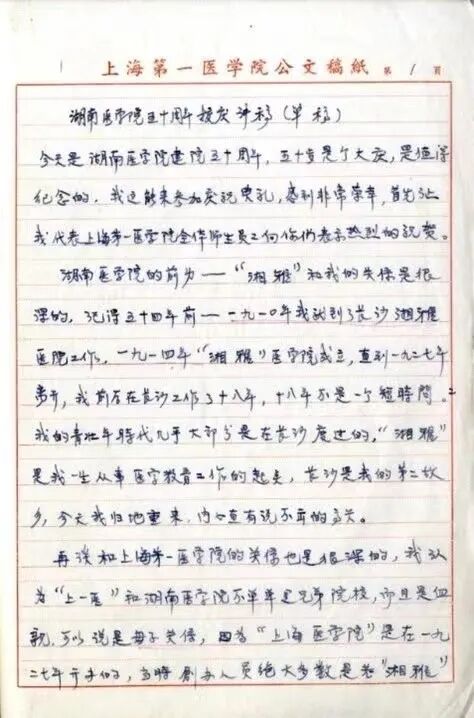 上海第一医学院公文稿紙 第1页
湖南医学院五十周年校庆讲稿（草稿）
今天是湖南医学院建院五十周年，五十岁是个大庆，是值得
纪念的，我这能来参加庆祝典礼，感到非常荣幸，首先让
我代表上海第一医学院全体师生员工向你们表示热烈的祝贺。
湖南医学院的前身——“湘雅”和我的关係是很
深的，记得五十四年前——一九一〇年我就到了长沙湘雅
医院工作，一九一四年“湘雅”医学院成立，直到一九二七年
离开，我前后在长沙工作了十八年，十八年不是一个短時間。
我的青壮年時代几乎大部分是在长沙度过的，“湘雅”
是我一生从事医学教育工作的起点，长沙是我的第二故
乡，今天我归地重来，内心直有说不出的高兴。
再谈和上海第一医学院的关係也是很深的，我认
为“上一医”和湖南医学院不单单是兄弟院校，而且是血
親，可以说是母子关係，因为“上海医学院”是在一九
二七年开办的，当時創办人员绝大多数是老“湘雅”